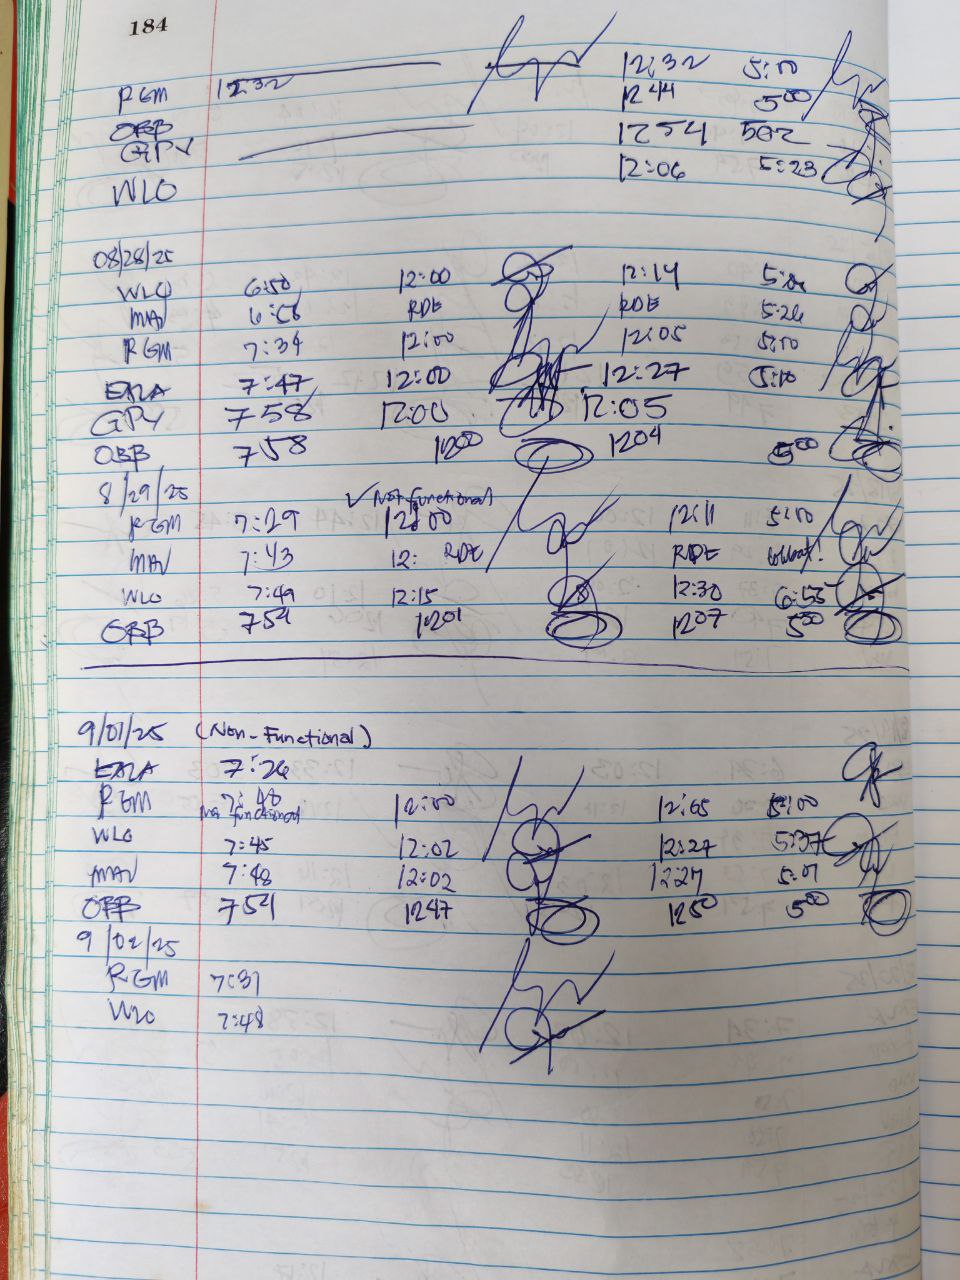 184
RGM 12:32 12:32 5:00
OBB 12 44 5 00
GPY 12 54 5 02
WLO 12:06 5:23
08/28/25
WLO 6:50 12:00 12:14
MAV 6:58 RDE RDE 5:26
RGM 7:34 12:00 12:05 5:00
7:47 12:00 12:27 5:10
GPY 7 58 12:00 12:05
OBB 7 58 12 00 12 04 5 00
8/29/25 ✓ Not functional
RGM 7:29 12:00 12:11 5:00
MAV 7:43 12: RDE RDE
WLO 7:49 12:15 12:30 6:55
OBB 7 54 12 01 12 07 5 00
9/01/25 (Non-Functional)
7:26
RGM 7:40 12:00 12:05 5:00
Not functional
WLO 7:45 12:02 12:27 5:37
MAV 7:48 12:02 12:27 5:01
OBB 7 54 12 47 12 50 5 00
9/02/25
RGM 7:31
WLO 7:48